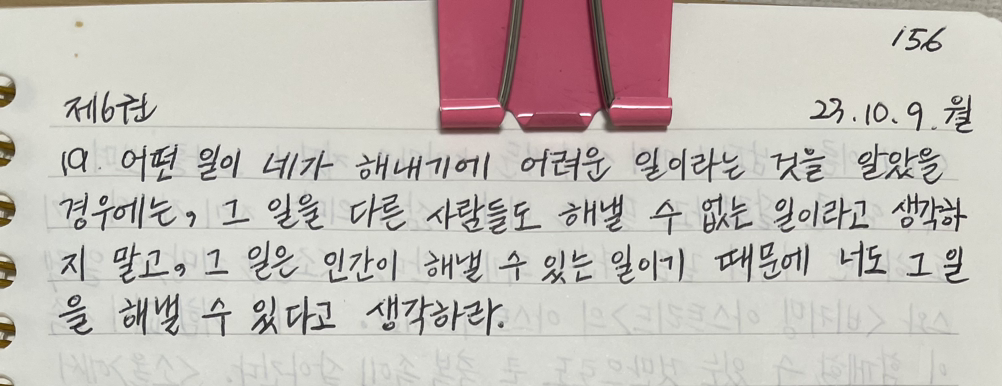 156
제6권
23.10.9.월
19. 어떤 일이 네가 해내기에 어려운 일이라는 것을 알았을
경우에는, 그 일을 다른 사람들도 해낼 수 없는 일이라고 생각하
지 말고, 그 일은 인간이 해낼 수 있는 일이기 때문에 너도 그 일
을 해낼 수 있다고 생각하라.